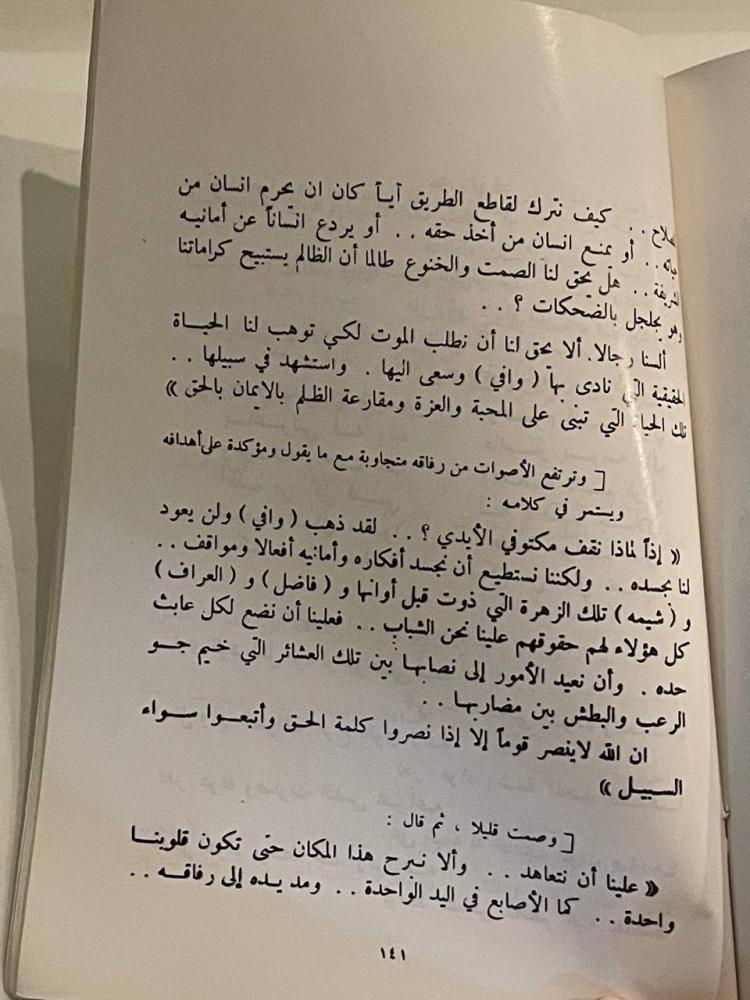 كيف نترك لقاطع الطريق أياً كان ان يحرم انسان من
.. أو يمنع انسان من أخذ حقه .. أو يردع انساناً عن أمانيه
.. هل يحق لنا الصمت والخنوع طالما أن الظالم يستبيح كراماتنا
وهو يجلجل بالضحكات ؟ ..
ألسنا رجالا. ألا يحق لنا أن نطلب الموت لكي توهب لنا الحياة
الحقيقية التي نادى بها ( وافي ) وسعى اليها . واستشهد في سبيلها ..
تلك الحياة التي تبنى على المحبة والعزة ومقارعة الظلم بالايمان بالحق »
[ وترتفع الأصوات من رفاقه متجاوبة مع ما يقول ومؤكدة على أهدافه
ويستمر في كلامه :
« إذاً لماذا نقف مكتوفي الأيدي ؟ .. لقد ذهب ( وافي ) ولن يعود
لنا بجسده .. ولكننا نستطيع أن نجسد أفكاره وأمانيه أفعالا ومواقف ..
و ( شيمه ) تلك الزهرة التي ذوت قبل أوانها و ( فاضل ) و ( العراف )
كل هؤلاء لهم حقوقهم علينا نحن الشباب .. فعلينا أن نضع لكل عابث
حده . وأن نعيد الأمور إلى نصابها بين تلك العشائر التي خيم جو
الرعب والبطش بين مضاربها ..
ان الله لاينصر قوماً إلا إذا نصروا كلمة الحق وأتبعوا سواء
السبيل »
[ وصمت قليلا ، ثم قال :
« علينا أن نتعاهد .. وألا نبرح هذا المكان حتى تكون قلوبنا
واحدة .. كما الأصابع في اليد الواحدة .. ومد يده إلى رفاقه ..
١٤١